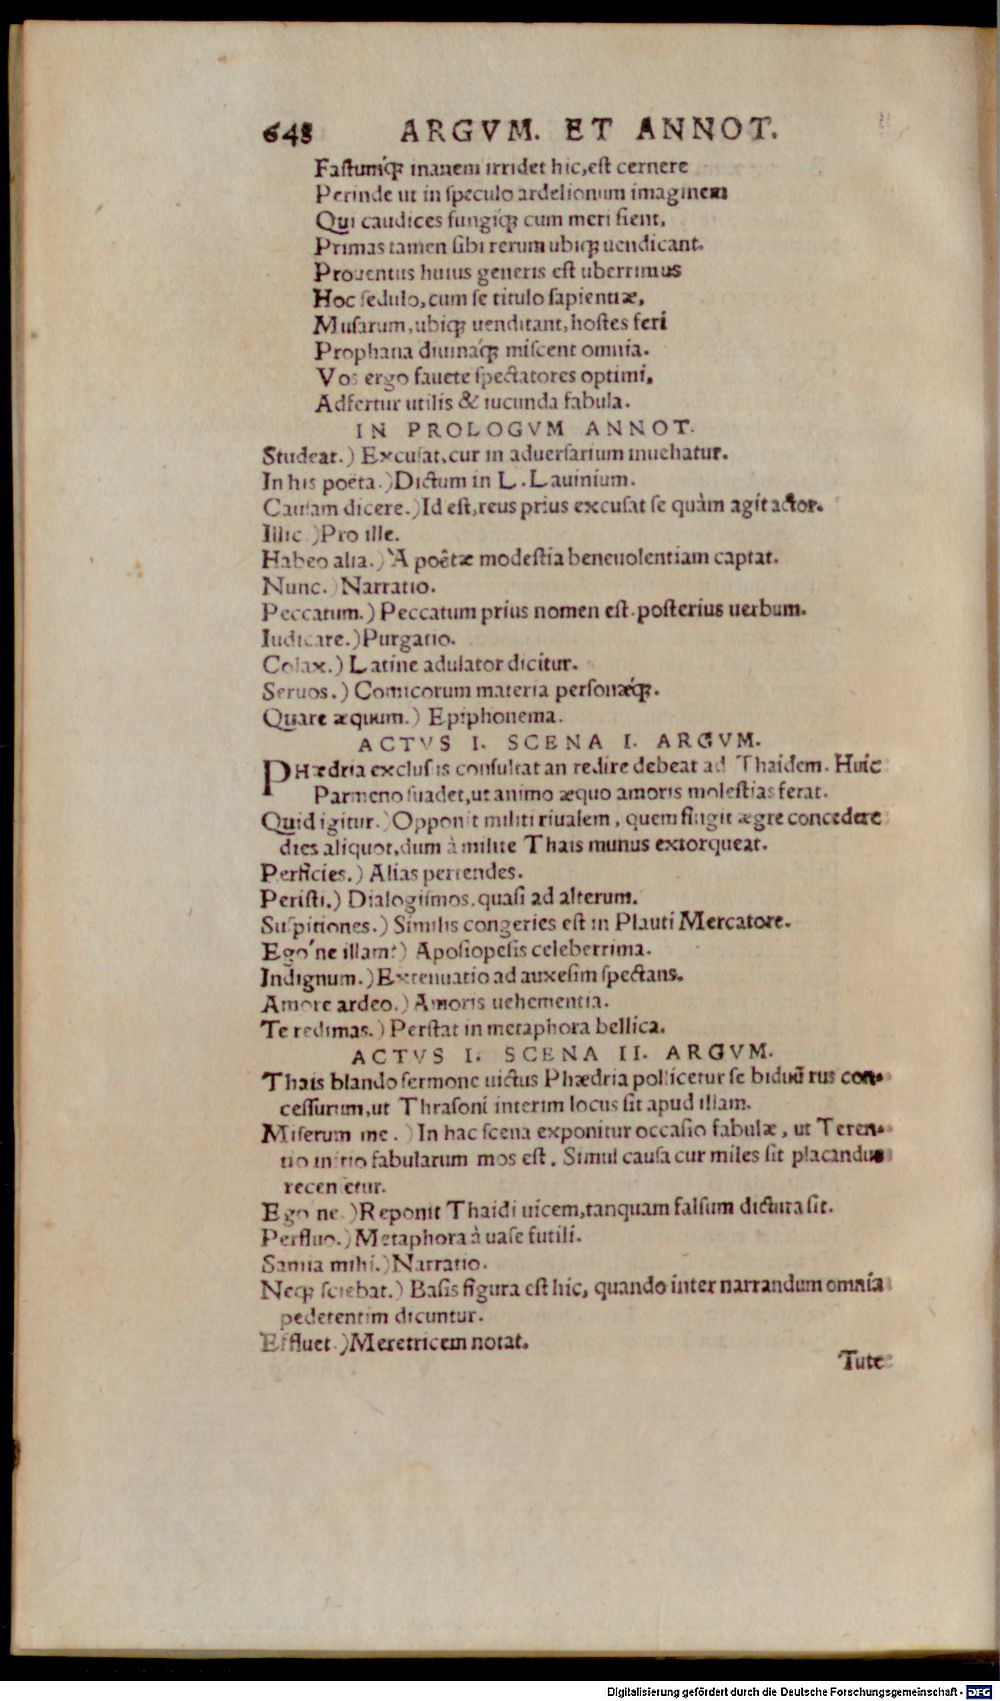 648 ARGVM. ET ANNOT.
Fastumq́ꝫ inanem irridet hic, est cernere
Perinde ut in speculo ardelionum imaginem
Qui caudices fungiq́ꝫ cum meri sient,
Primas tamen sibi rerum ubiqꝫ uendicant.
Prouentus huius generis est uberrimus
Hoc sedulo, cum se titulo sapientiæ,
Musarum, ubiqꝫ uenditant, hostes feri
Prophana diuinaq́ꝫ miscent omnia.
Vos ergo fauete spectatores optimi,
Adfertur utilis & iucunda fabula.
IN PROLOGVM ANNOT.
Studeat.) Excusat, cur in aduersarium inuehatur.
In his poëta.) Dictum in L. Lauinium.
Causam dicere.) Id est, reus prius excusat se quàm agit actor.
Illic.) Pro ille.
Habeo alia.) A poêtæ modestia beneuolentiam captat.
Nunc.) Narratio.
Peccatum.) Peccatum prius nomen est. posterius uerbum.
Iudicare.) Purgatio.
Colax.) Latine adulator dicitur.
Seruos.) Comicorum materia personæq́ꝫ.
Quare æquum.) Epiphonema.
ACTVS I. SCENA I. ARGVM.
PHædria exclusis consultat an redire debeat ad Thaidem. Huic
Parmeno suadet, ut animo æquo amoris molestias ferat.
Quid igitur.) Opponit militi riualem, quem fingit ægre concedere
dies aliquot, dum à milite Thais munus extorqueat.
Perficies.) Alias pertendes.
Peristi.) Dialogismos, quasi ad alterum.
Suspitiones.) Similis congeries est in Plauti Mercatore.
Ego'ne illam?) Aposiopesis celeberrima.
Indignum.) Extenuatio ad auxesim spectans.
Amore ardeo.) Amoris uehementia.
Te redimas.) Perstat in metaphora bellica.
ACTVS I. SCENA II. ARGVM.
Thais blando sermone uictus Phædria pollicetur se biduū rus con-
cessurum, ut Thrasoni interim locus sit apud illam.
Miserum me.) In hac scena exponitur occasio fabulæ, ut Teren-
tio initio fabularum mos est. Simul causa cur miles sit placandus
recensetur.
Ego'ne.) Reponit Thaidi uicem, tanquam falsum dictura sit.
Perfluo.) Metaphora à uase futili.
Samia mihi.) Narratio.
Neqꝫ sciebat.) Basis figura est hic, quando inter narrandum omnia
pedetentim dicuntur.
Effluet.) Meretricem notat.
Tute
Digitalisierung gefördert durch die Deutsche Forschungsgemeinschaft - DFG